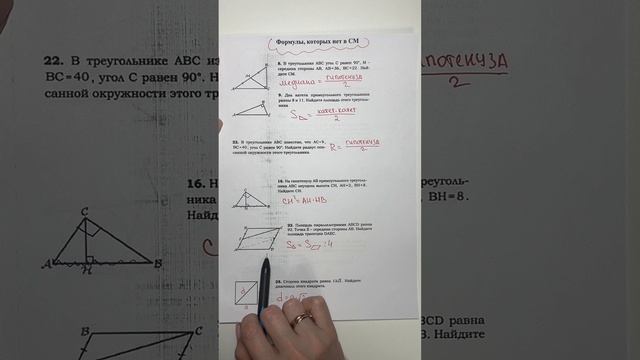 Формулы, которых нет в СМ
8. В треугольнике ABC угол C равен 90°, M –
середина стороны AB, AB=36, BC=22. Най-
дите CM.
медиана = гипотенуза
2
9. Два катета прямоугольного треугольника
равны 8 и 11. Найдите площадь этого треуголь-
ника.
S = катет·катет
2
22. В треугольнике ABC известно, что AC=9,
BC=40, угол C равен 90°. Найдите радиус опи-
санной окружности этого треугольника.
R = гипотенуза
2
16. На гипотенузу AB прямоугольного треуголь-
ника ABC опущена высота CH, AH=2, BH=8.
Найдите CH.
CH² = AH·HB
Площадь параллелограмма ABCD равна
92. Точка E – середина стороны AB. Найдите
площадь трапеции DAEC.
: 4
Сторона квадрата равна
Найдите
диагональ этого квадрата.
d
a
22. В треугольнике ABC из
BC=40, угол C равен 90°. Н
санной окружности этого тр
потенуза
2
16. Н
ника
Найд
C
A
H
B
B
C
угольного треуголь-
BH=8.
BCD равна
В. Найдите